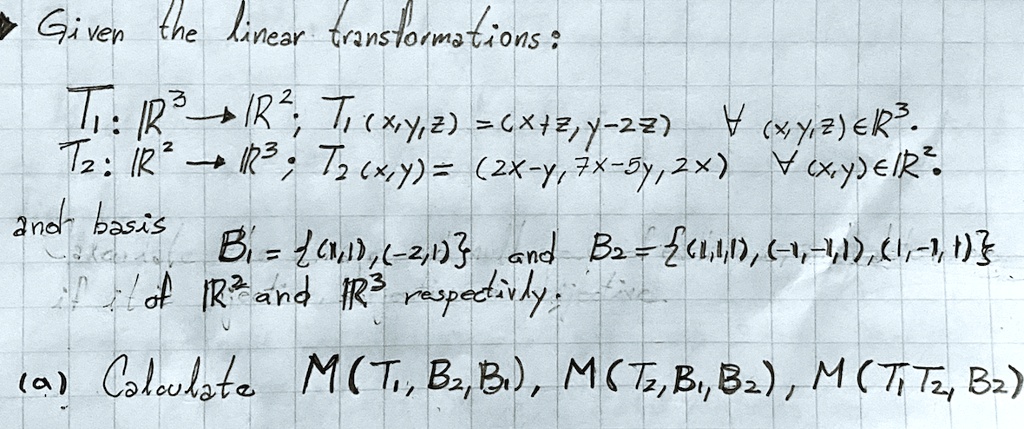 Given the linear transformations:
T₁: ℝ³ → ℝ²; T₁(x,y,z) = (x+z, y-2z) ∀ (x,y,z)∈ℝ³.
T₂: ℝ² → ℝ³; T₂(x,y) = (2x-y, 7x-5y, 2x) ∀ (x,y)∈ℝ².
and basis
B₁ = {(1,1),(-2,1)} and B₂ = {(1,1,1), (-1,-1,1), (1,-1,1)}
of ℝ² and ℝ³ respectivly.
(a) Calculate M(T₁, B₂, B₁), M(T₂, B₁, B₂), M(T₁T₂, B₂)